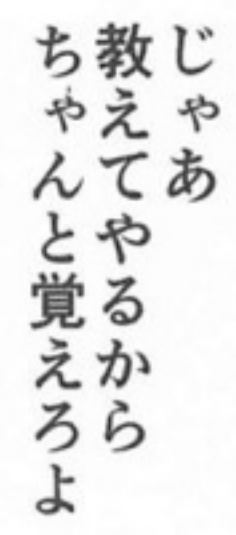 じゃあ
教えてやるから
ちゃんと覚えろよ